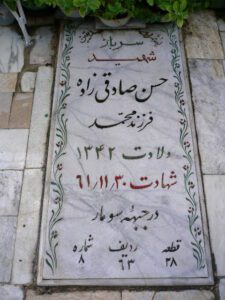 سرباز
شهید
حسن صادقی زاده
فرزند محمد
ولادت ۱۳۴۲
شهادت ۶۱/۱۱/۳۰
در جبهه سومار
قطعه ردیف شماره
۲۸ ۶۳ ۸